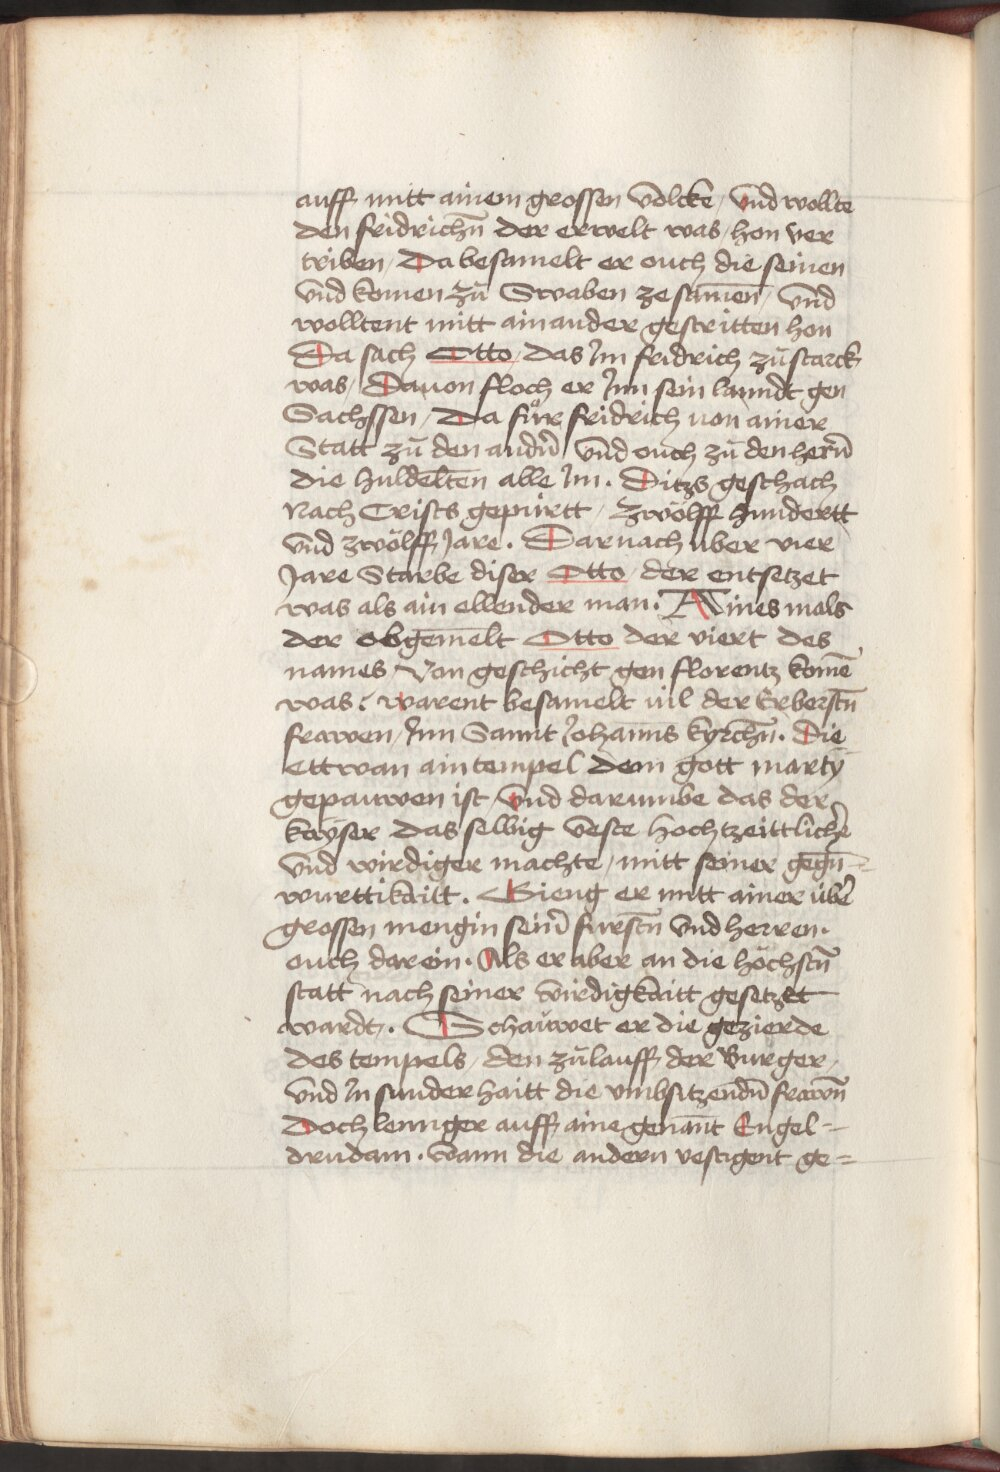 auff mitt ainem grossen volcke / vnd wollte
den fridrichn̄ der erwelt was / hon ver
triben / Da besamelt er ouch die seinen
vnd komen zů Swaben ze samen̄ / vnd
wolltent mitt ainander gestritten hon
Da sach Otto / das Jm fridrich zů starck
was / Dauon floch er Jnn sein lanndt gen
Sachssen / Da fůr fridrich von ainer
Statt zů den andn̄ vnd ouch zů den hern̄
die huldelten alle Jm . Ditzs geschach
Nach Crists gepůrtt / Zwölff hundertt
vnd zwölff Jare . Darnach über vier
Jare Starbe diser Otto / der entsetzet
was als ain ellender man . Aines mals
der obgemelt Otto der viert des
names / Von geschicht gen florentz komē
was / warent besamelt vil der Erberstn̄
frawen / Jnn Sannt Johanns kyrchn̄ . Die
ettwan ain tempel dem gott marty
gepauwen ist / vnd darumbe das der
kayser das selbig veste hochtzeittlichr̄
vnd wirdiger machte / mitt seiner gegn̄=
wurttikaitt . Gieng er mitt ainer übr̄
grossen mengin seinr̄ fürstn̄ vnd herren .
ouch darein . Als er aber an die höchstn̄
statt nach seiner wirdigkaitt gesetzet
wardt / . Schauwet er die gezierde
des tempels / den zůlauff der Burger /
vnd Jn sunderhaitt die vmbsitzendn̄ frawn̄
Doch lennger auff aine genant Engel=
drudam . wann die andern vestigent ge=